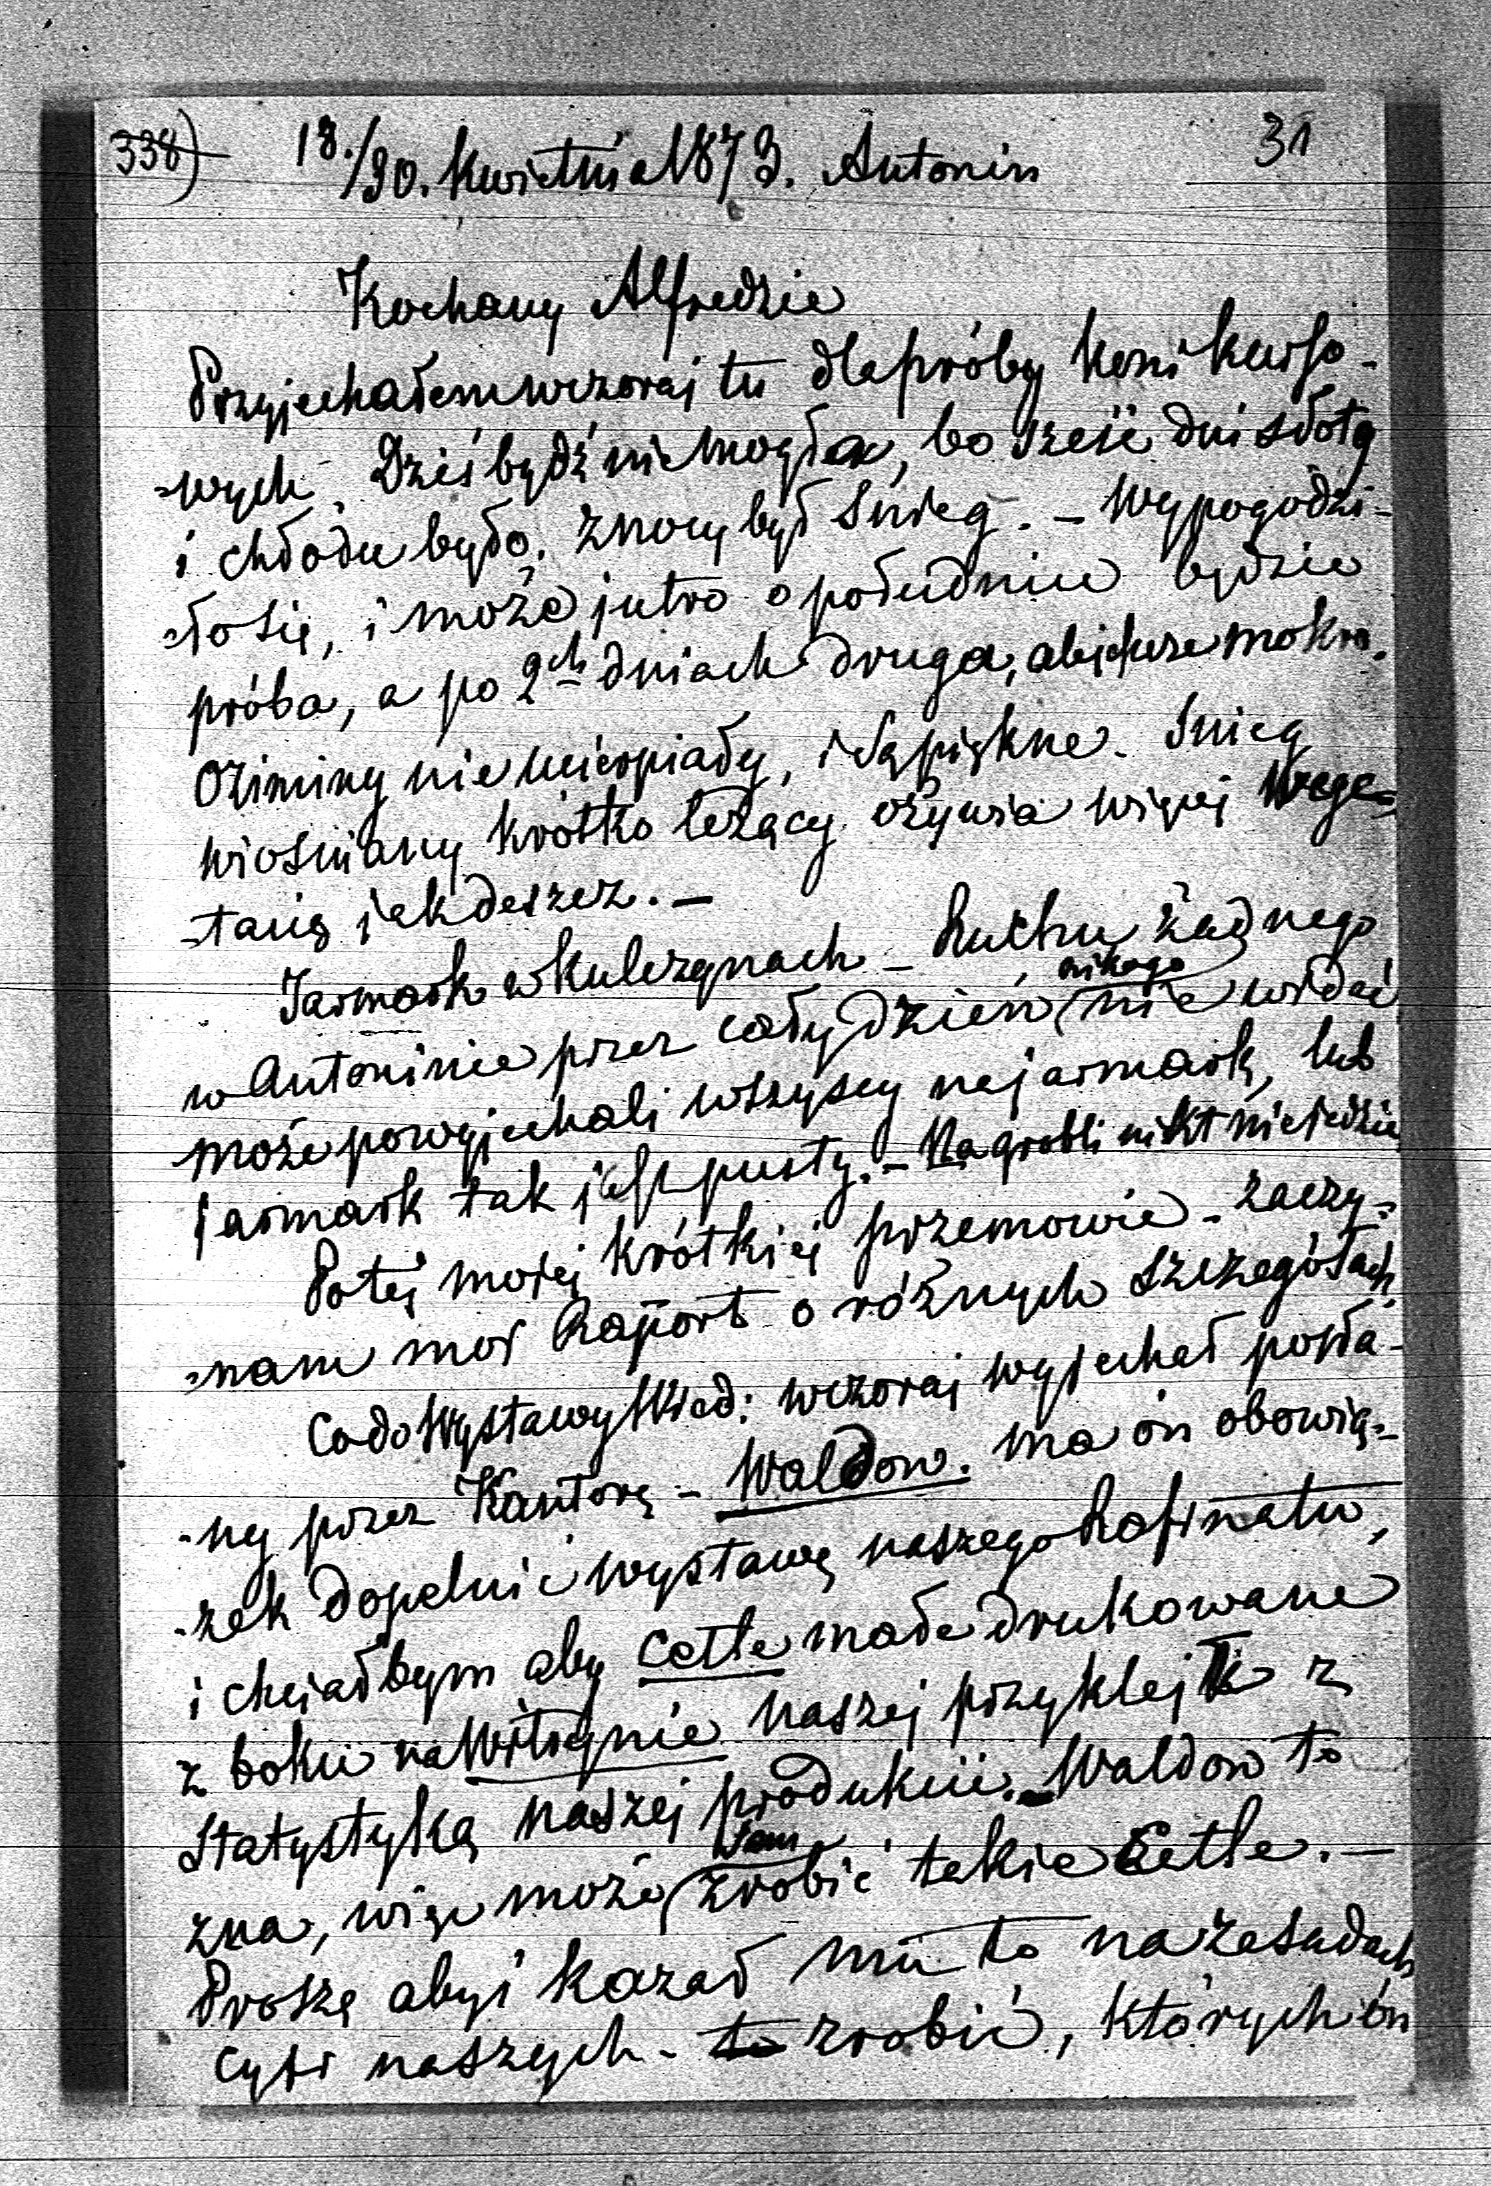 338) 18./30. kwietnia 1873. Antonin 31
Kochany Alfredzie
Przyjechałem wczoraj tu dla próby koni kurso-
-wych. Dziś bydź nie mogła, bo sześć dni słoty
i chłodu było. Znowy był śnieg. - Wypogodzi-
-ło się, i może jutro o południu będzie
próba, a po 2ch dniach druga, aby jeszcze mokro.
Oziminy nie ucierpiały, i są piękne. Śnieg
wiosniany krótko leżący ożywia więcej wege-
-tacią jak deszcz. -
Jarmark w Kulczynach - Ruchu żadnego
w Antoninie przez cały dzień nikogo nie widać
może powyjechali wszyscy na jarmark, lub
jarmark tak jest pusty. - Na grobli nikt nie jedzie
Po tej mojej krótkiej przemowie - zaczy-
-nam mój Raport o różnych szczegółach
Co do Wystawy Wied: wczoraj wyjechał posła-
-ny przez Kantorę - Waldow. ma ón obowią-
-zek dopełnić wystawę naszego Rafinatu,
i chciałbym aby Cetle małe drukowane
z boku na Witrynie naszej przykleić z
Statystyką naszej produkcii. - Waldow to
zna, więc może sam zrobić takie Cetle. -
Proszę abyś kazał mu to na zasadach
cyfr naszych - to zrobić, których ón